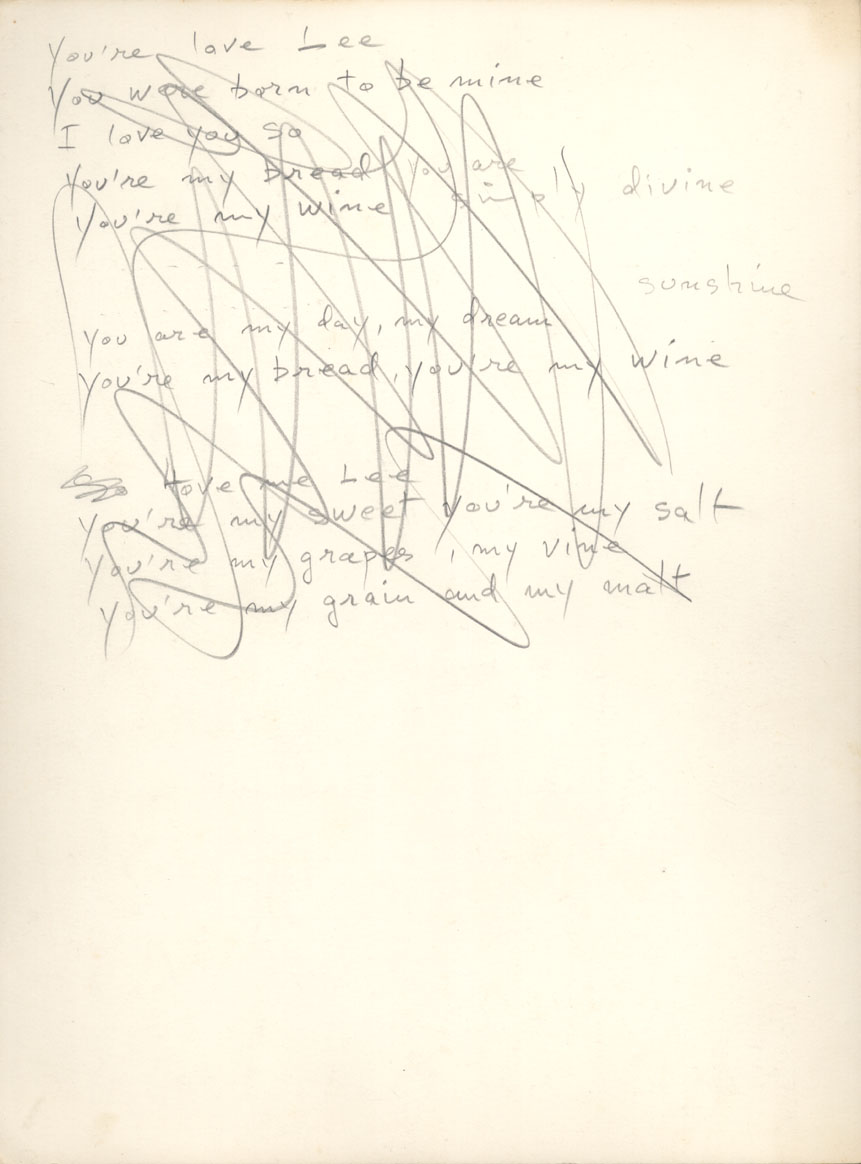 You're love Lee
You were born to be mine
I love you so
You're my bread you are
simply divine
You're my wine
sunshine
You are my day, my dream
You're my bread, you're my wine
Love me Lee
You're my sweet you're my salt
You're my grapes, my vine
You're my grain and my malt